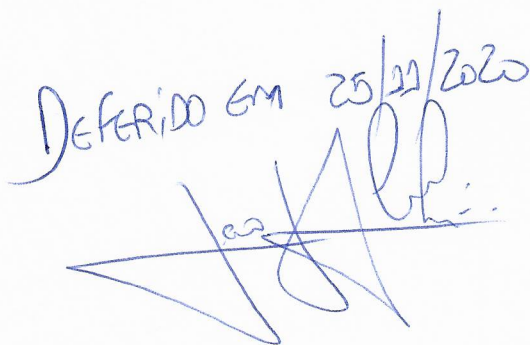 DEFERiDO EM 25/11/2020